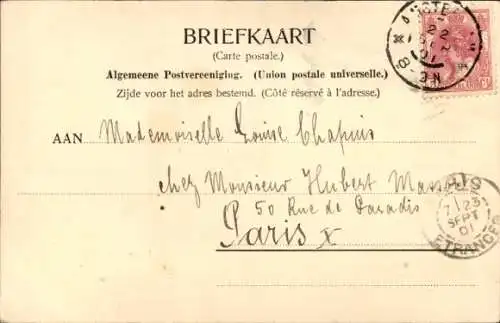 BRIEFKAART
(Carte postale.)
Algemeene Postvereeniging. (Union postale universelle.)
Zijde voor het adres bestemd. (Côté réservé à l'adresse.)
AAN Mademoiselle Louise Chapuis
chez Monsieur Hubert
50 Rue de Paradis
Paris X
23
SEPT
01
ETRANGER